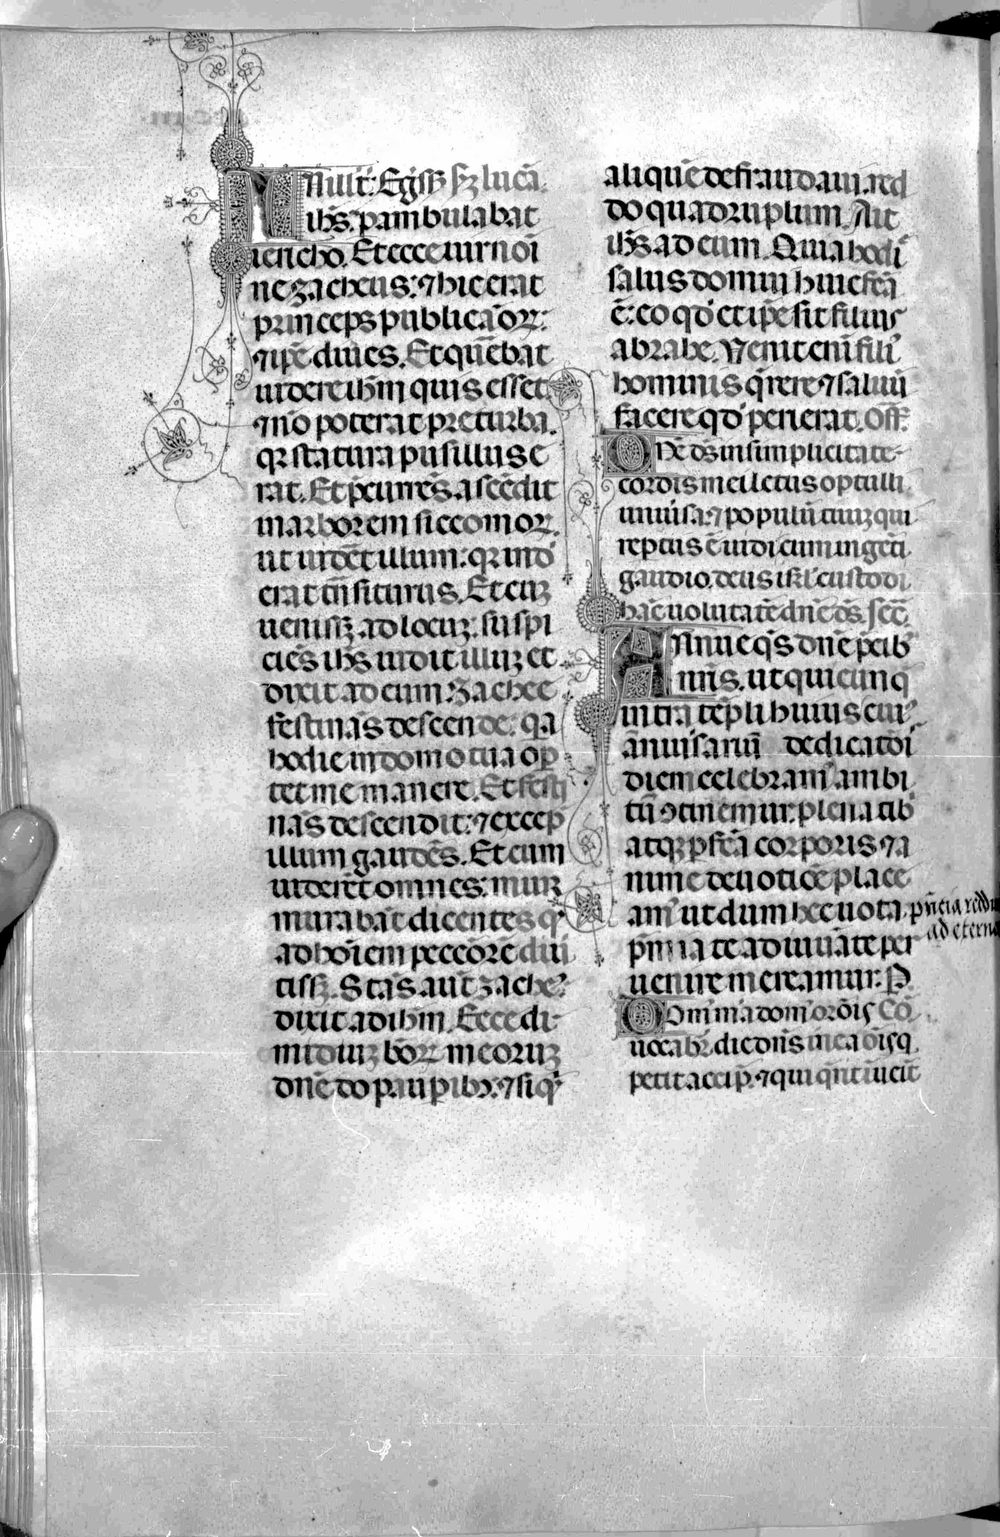 In illo t̃. Egr̃ss3 s3 lucã.
ih̃s. p̃ambulabat
iericho. Et ecce uir noĩ
ne zacheus: ⁊ hic erat
princeps publicãoꝝ:
⁊ ip̃e diues. Et q̃rebat
uidere ih̃m quis esset
⁊ nõ poterat pre turba.
qꝛ statura pusillus e
rat. Et p̃currẽs ascẽdit
in arborem siccomoꝝ.
ut uidẽt illum: qꝛ indẽ
erat trãsiturus. Et cu3
uenis3 ad locu3: suspi
ciẽs ih̃s uidit illu3 et
dixit ad eum: zachee
festinãs descende: q̃a
hodie in domo tua op̃
tet me manere. Et festi
nãs descendit: ⁊ excep̃
illum gaudẽs. Et cum
uiderẽt omnes: mur
murabãt dicentes q̃
ad hoĩem peccõrẽ diũ
tiss3. Stãs aut̃ zache᷒
dixit ad ih̃m. Ecce di
midiu3 boñoꝝ meoru3
dñe do paup̃ib3: ⁊ si q̃
aliquẽ defraudaui red
do quadruplum. Ait
ih̃s ad eum. Quia hodi
salus domui huic fc̃a
ẽ: eo qd̃ et ip̃e sit filius
abrahe. Uenit enĩ fili᷒
hominis q̃rere ⁊ saluũ
facere qd̃ perierat. Off̃.
Dñe ds̃ in simplicitate
cordis mei letus optuli
uniũsa. ⁊ populũ tuu3 qui
rep̃tus ẽ uidi cum ingẽti
gaudio. deus isr̃l custodi
hãc uolũtatẽ dñe ds̃. Sec̃.
Annue q̃s dñe p̃cib᷒
nr̃is. ut quicunq̃
intra tẽpli huius cui᷒
ãniũsariũ dedicatõi
diem celebram᷒ ambi
tũ ꝯtinemur. plena tib᷒
atq3 p̃fc̃a corporis ⁊ a
nime deuotiõe place
am᷒ ut dum hec uota
p̃ñtia te adiuuãte per
uenire mereamur. P.
Dom᷒ mea dom᷒ or̃õis
uocabr̃. dic dñs in ea oĩs q̃
petit accip̃. ⁊ qui q̃rit ĩuẽit
p̃ñcia reddim᷒
ad eterna